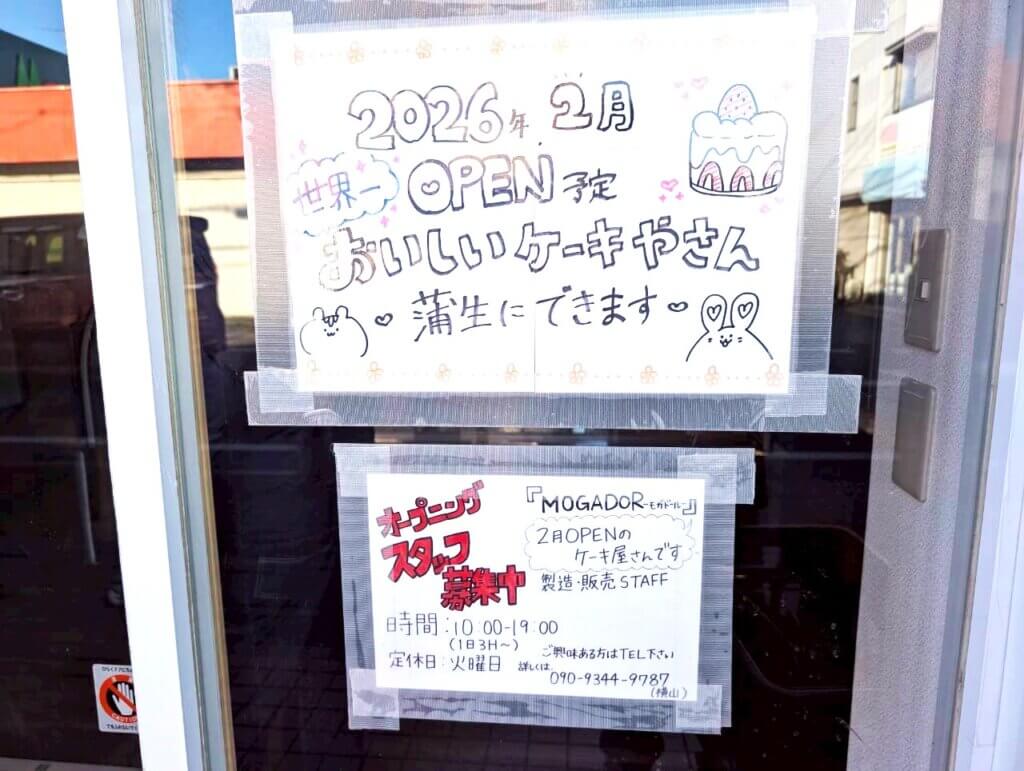 2026年 2月
世界一 OPEN 予定
おいしいケーキやさん
蒲生にできます
オープニング
スタッフ
募集中
『MOGADOR-モガドール-』
2月OPENの
ケーキ屋さんです
製造・販売 STAFF
時間:10:00-19:00
(1日3H〜)
定休日:火曜日
ご興味ある方はTEL下さい
詳しくは、
090-9344-9787
(横山)
CAUTION